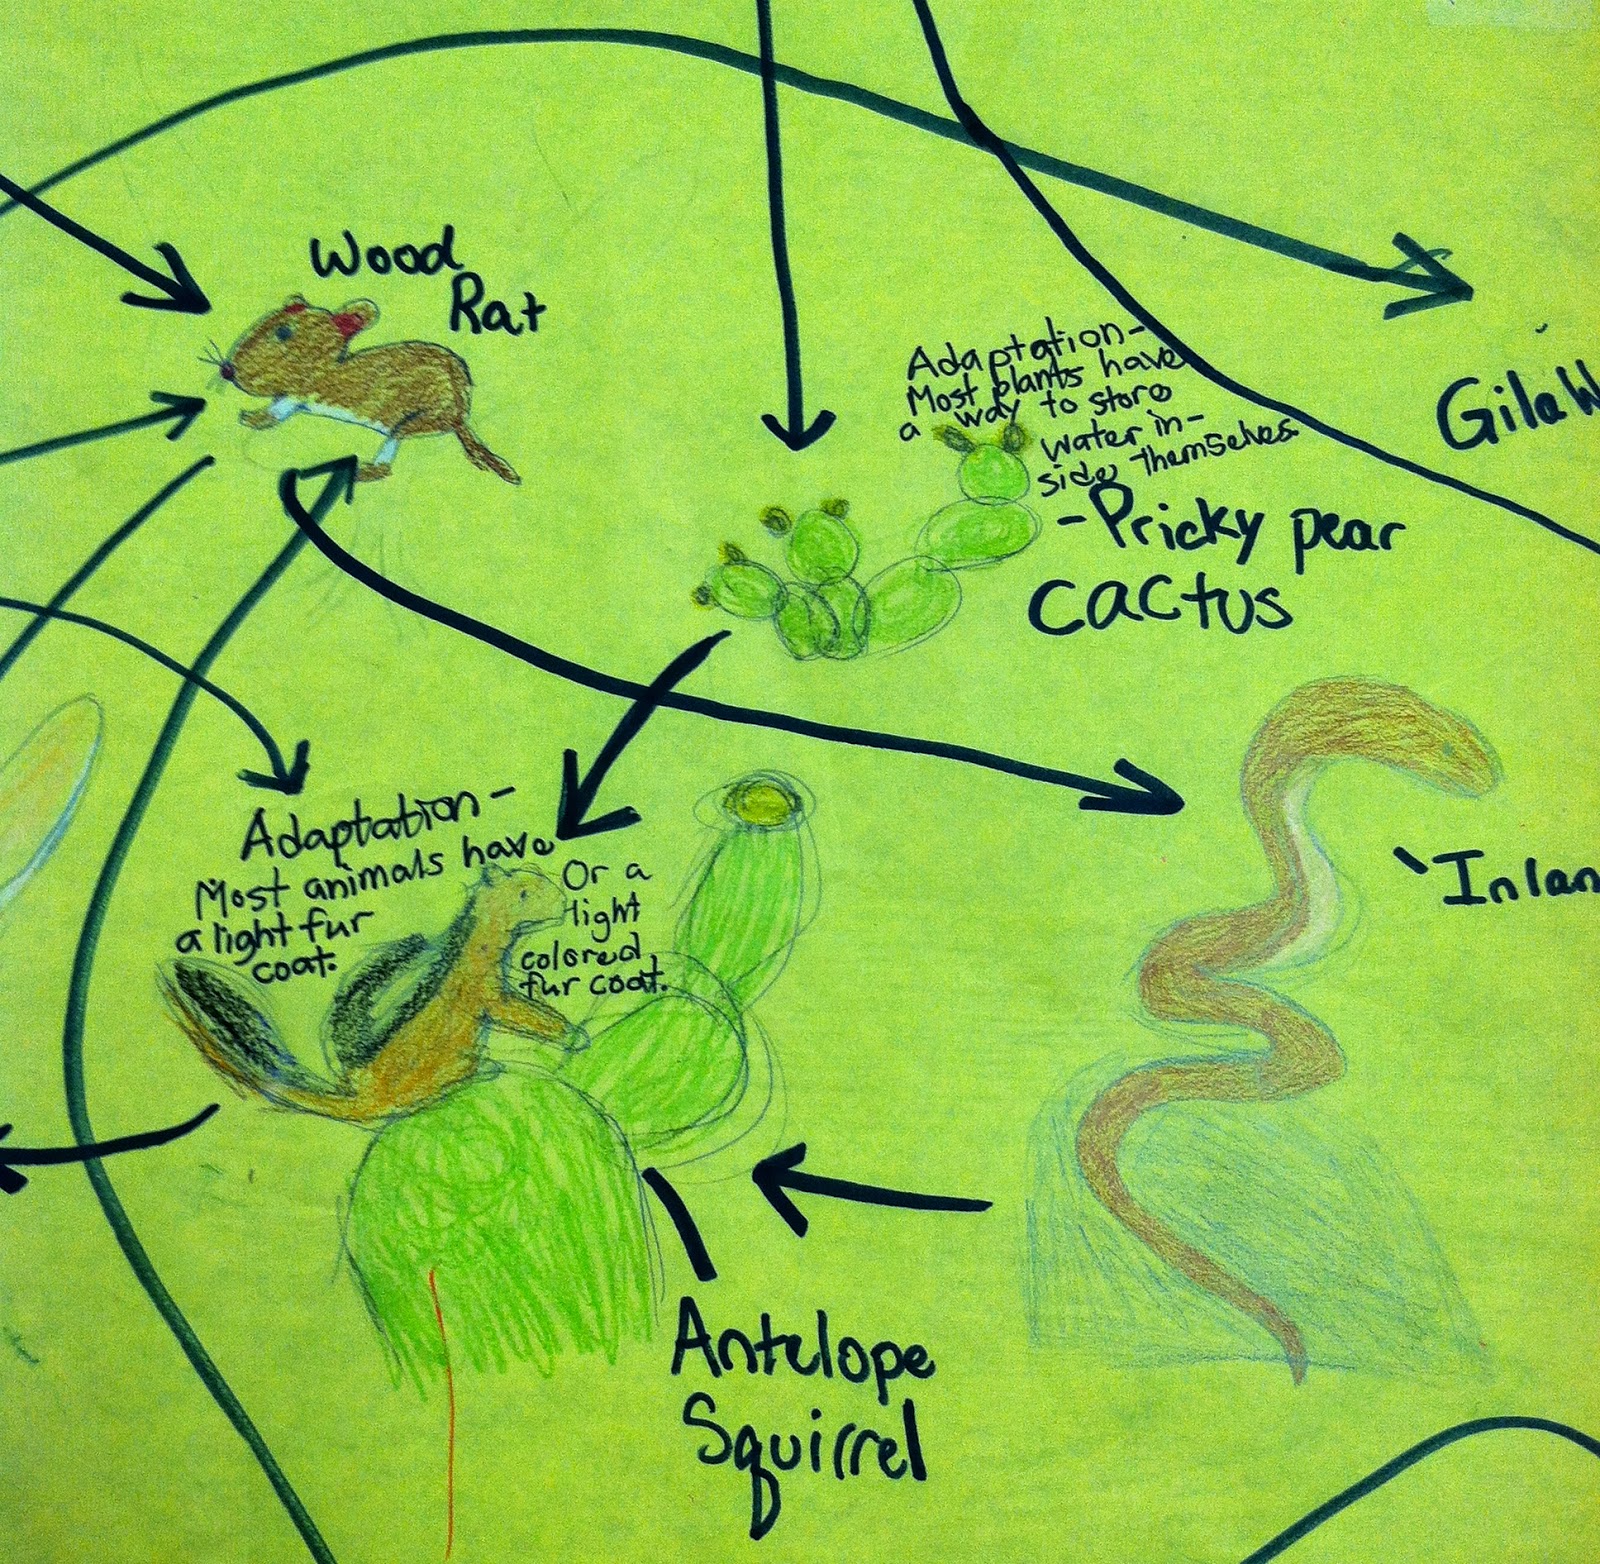 Wood
Rat
Adaptation-
Most plants have
a way to store
water in-
side themselves.
-Pricky pear
cactus
Gila W
Adaptation-
Most animals have
a light fur
coat.
Or a
light
colored
fur coat.
Inlan
Antelope
Squirrel